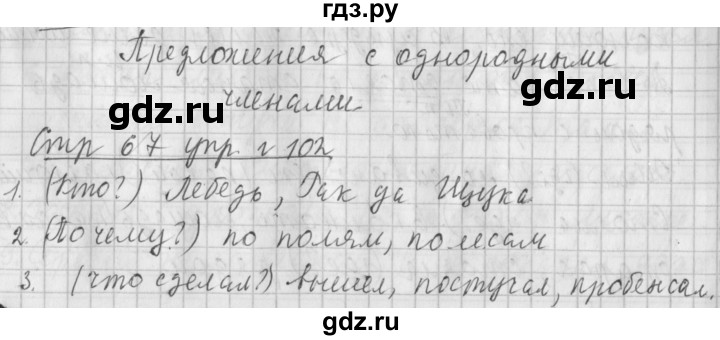 гдз.ру
Предложения с однородными
членами.
gdz.ru
gdz.ru
Стр 67 упр. г 102
1. (Кто?) Лебедь, Рак да Щука
2. (По чему?) по полям, по лесам
3. (что сделал?) вышел, постучал, пробенсал.
gdz.ru
gdz.ru